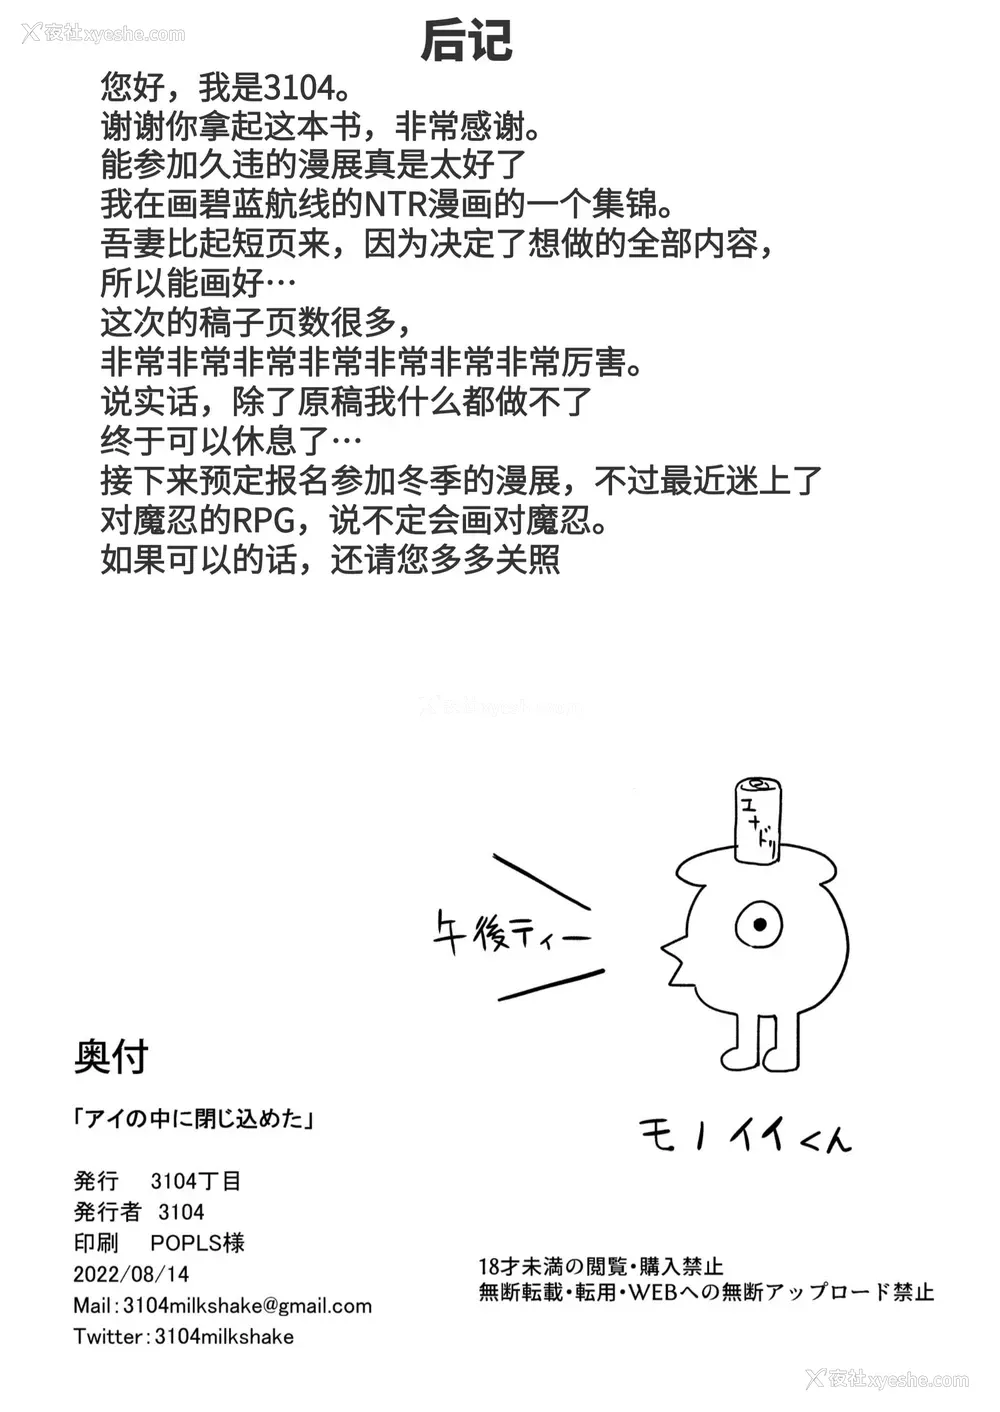 夜社xyeshe.com
后记
您好，我是3104。
谢谢你拿起这本书，非常感谢。
能参加久违的漫展真是太好了
我在画碧蓝航线的NTR漫画的一个集锦。
吾妻比起短页来，因为决定了想做的全部内容，
所以能画好…
这次的稿子页数很多，
非常非常非常非常非常非常非常厉害。
说实话，除了原稿我什么都做不了
终于可以休息了…
接下来预定报名参加冬季的漫展，不过最近迷上了
对魔忍的RPG，说不定会画对魔忍。
如果可以的话，还请您多多关照
エナドリ
午後ティー
モノイイくん
奥付
「アイの中に閉じ込めた」
発行 3104丁目
発行者 3104
印刷 POPLS様
2022/08/14
Mail：3104milkshake@gmail.com
Twitter：3104milkshake
18才未満の閲覧・購入禁止
無断転載・転用・WEBへの無断アップロード禁止
夜社xyeshe.com